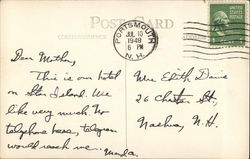 POST CARD
CORRESPONDENCE
PORTSMOUTH
JUL 10
1948
6 PM
N.H.
Dear Mother,
This is our hotel
on Star Island. We
like very much. No
telephone here, telegram
would reach me.
Mrs. Edith Dane
26 Chester St.,
Nashua, N.H.